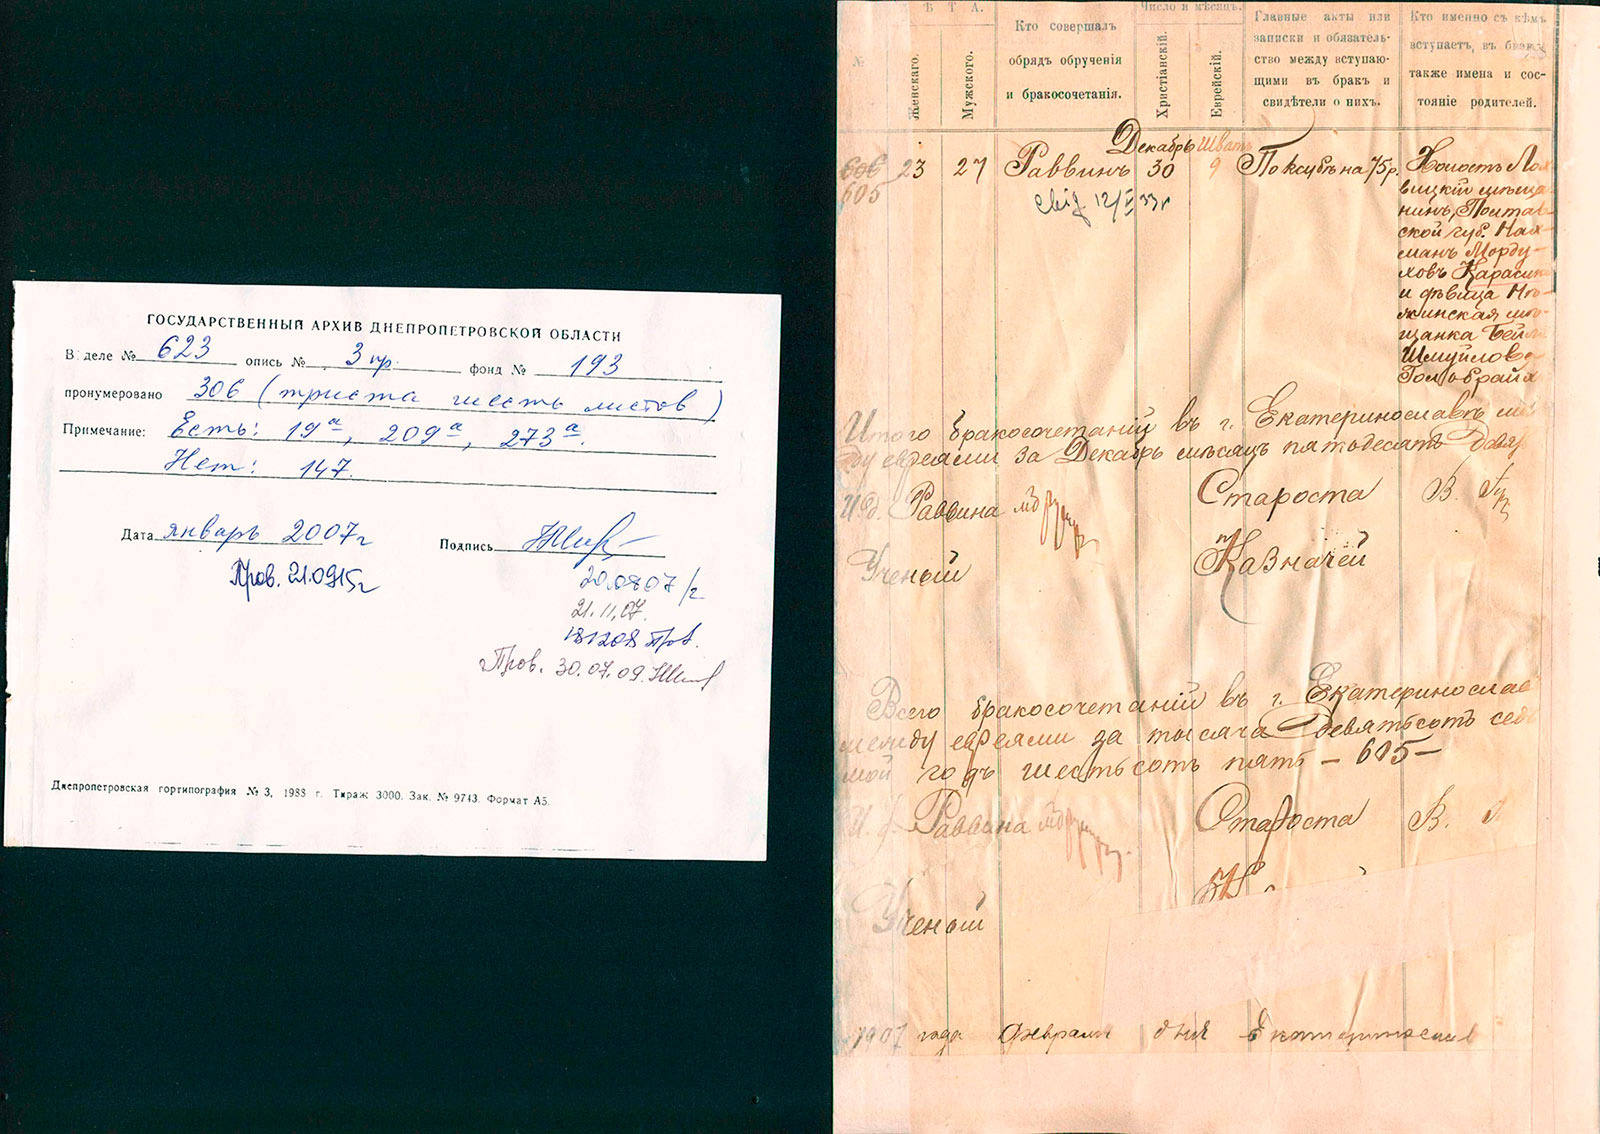 ГОСУДАРСТВЕННЫЙ АРХИВ ДНЕПРОПЕТРОВСКОЙ ОБЛАСТИ
В деле № 623 опись № 3 пр. фонд № 193
пронумеровано 306 (триста шесть листов)
Примечание: Есть: 19а, 209а, 273а.
Нет: 147.
Дата январь 2007г Подпись
Пров. 21.0915г
20.0807/г
21.11.07.
181208 Пров.
Пров. 30.07.09.
Днепропетровская гортипография № 3, 1988 г. Тираж 3000. Зак. № 9743. Формат А5.
Ѣ Т А.
№
Женскаго.
Мужского.
Кто совершалъ
обрядъ обрученія
и бракосочетанія.
Число и мѣсяцъ.
Христіанскій.
Еврейскій.
Главные акты или
записки и обязатель-
ство между вступаю-
щими въ бракъ и
свидѣтели о нихъ.
Кто именно съ кѣмъ
вступаетъ, въ бракъ
также имена и сос-
тояніе родителей.
Декабрь Шватъ
606 23 27 Раввинъ 30 9 По ксубѣ на 75 р.
605
12/II 33г
Холостъ Лох-
вицкій мѣща-
нинъ, Полтав-
ской губ. Нах-
манъ Морду-
ховъ Карасик
и дѣвица Нѣ-
жинская мѣ-
щанка Бейла
Шмуйлова
Гольдбрайх
Итого бракосочетаній въ г. Екатеринославѣ ме
ду евреями за Декабрь мѣсяцъ пятьдесятъ два
И. д. Раввина Староста В.
Ученый Казначей
Всего бракосочетаній въ г. Екатеринослав
между евреями за тысяча девятьсотъ седь
мой годъ шестьсотъ пять — 605 —
И. д. Раввина Староста В.
Ученый
1907 года февраля дня Екатеринослав